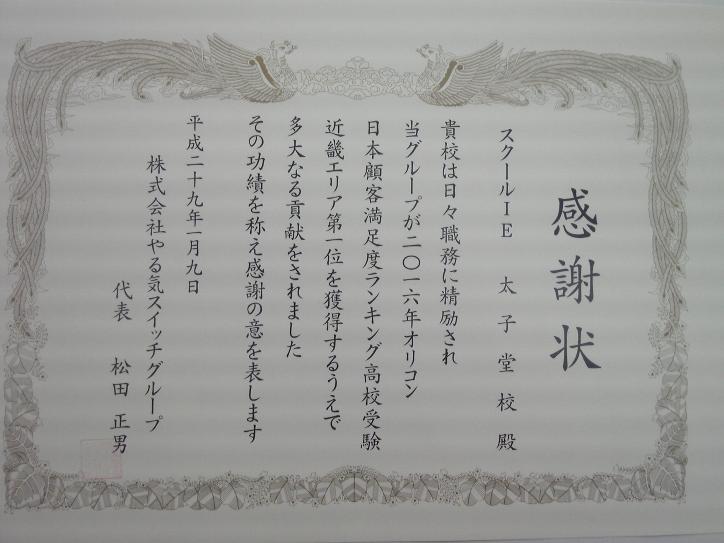 感謝状
スクールIE 太子堂校殿
貴校は日々職務に精励され
当グループが二〇一六年オリコン
日本顧客満足度ランキング高校受験
近畿エリア第一位を獲得するうえで
多大なる貢献をされました
その功績を称え感謝の意を表します
平成二十九年一月九日
株式会社やる気スイッチグループ
代表 松田正男